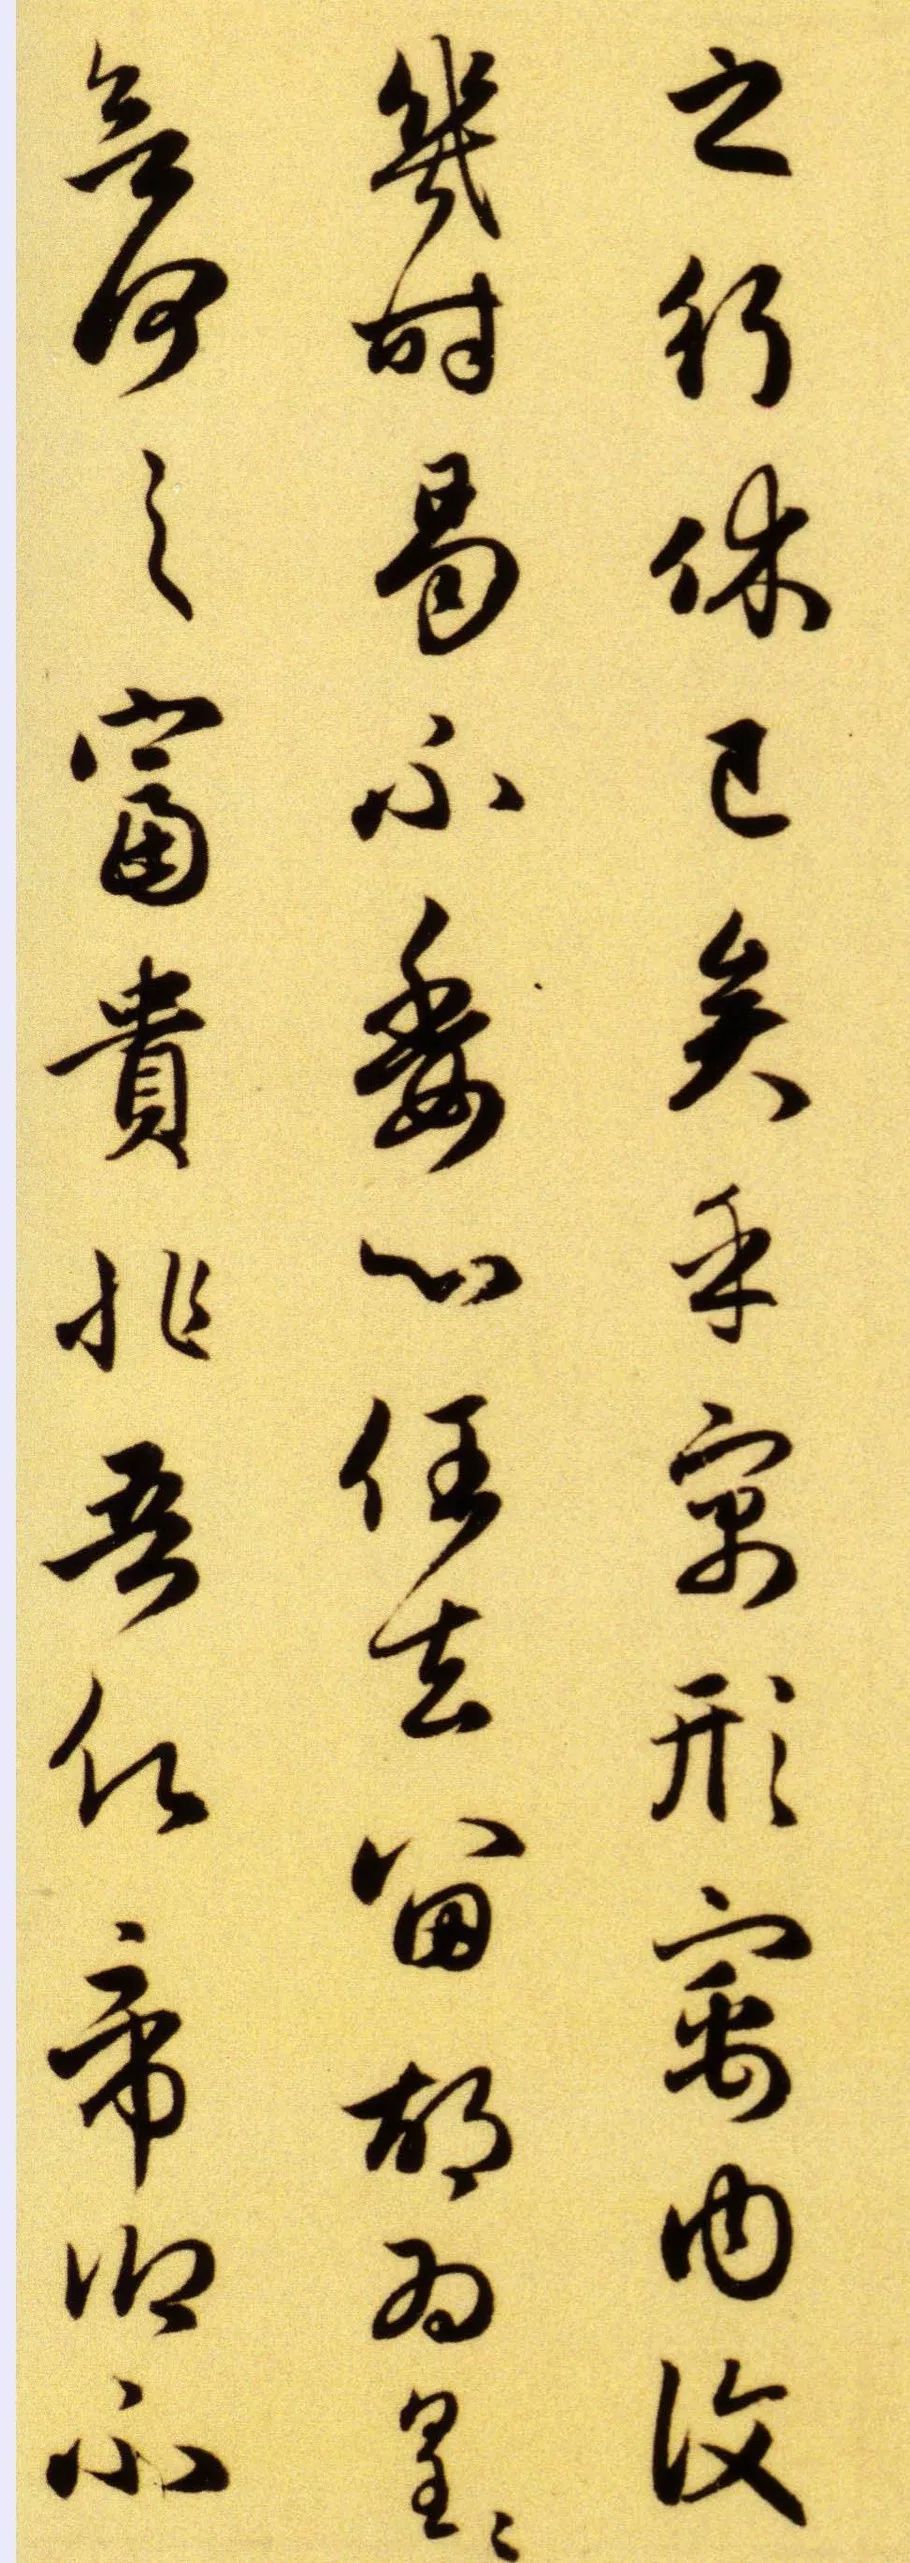 之行休已矣乎寓形寓内復
幾時曷不委心任去留胡為皇〻
欲何之富貴非吾願帝鄉不